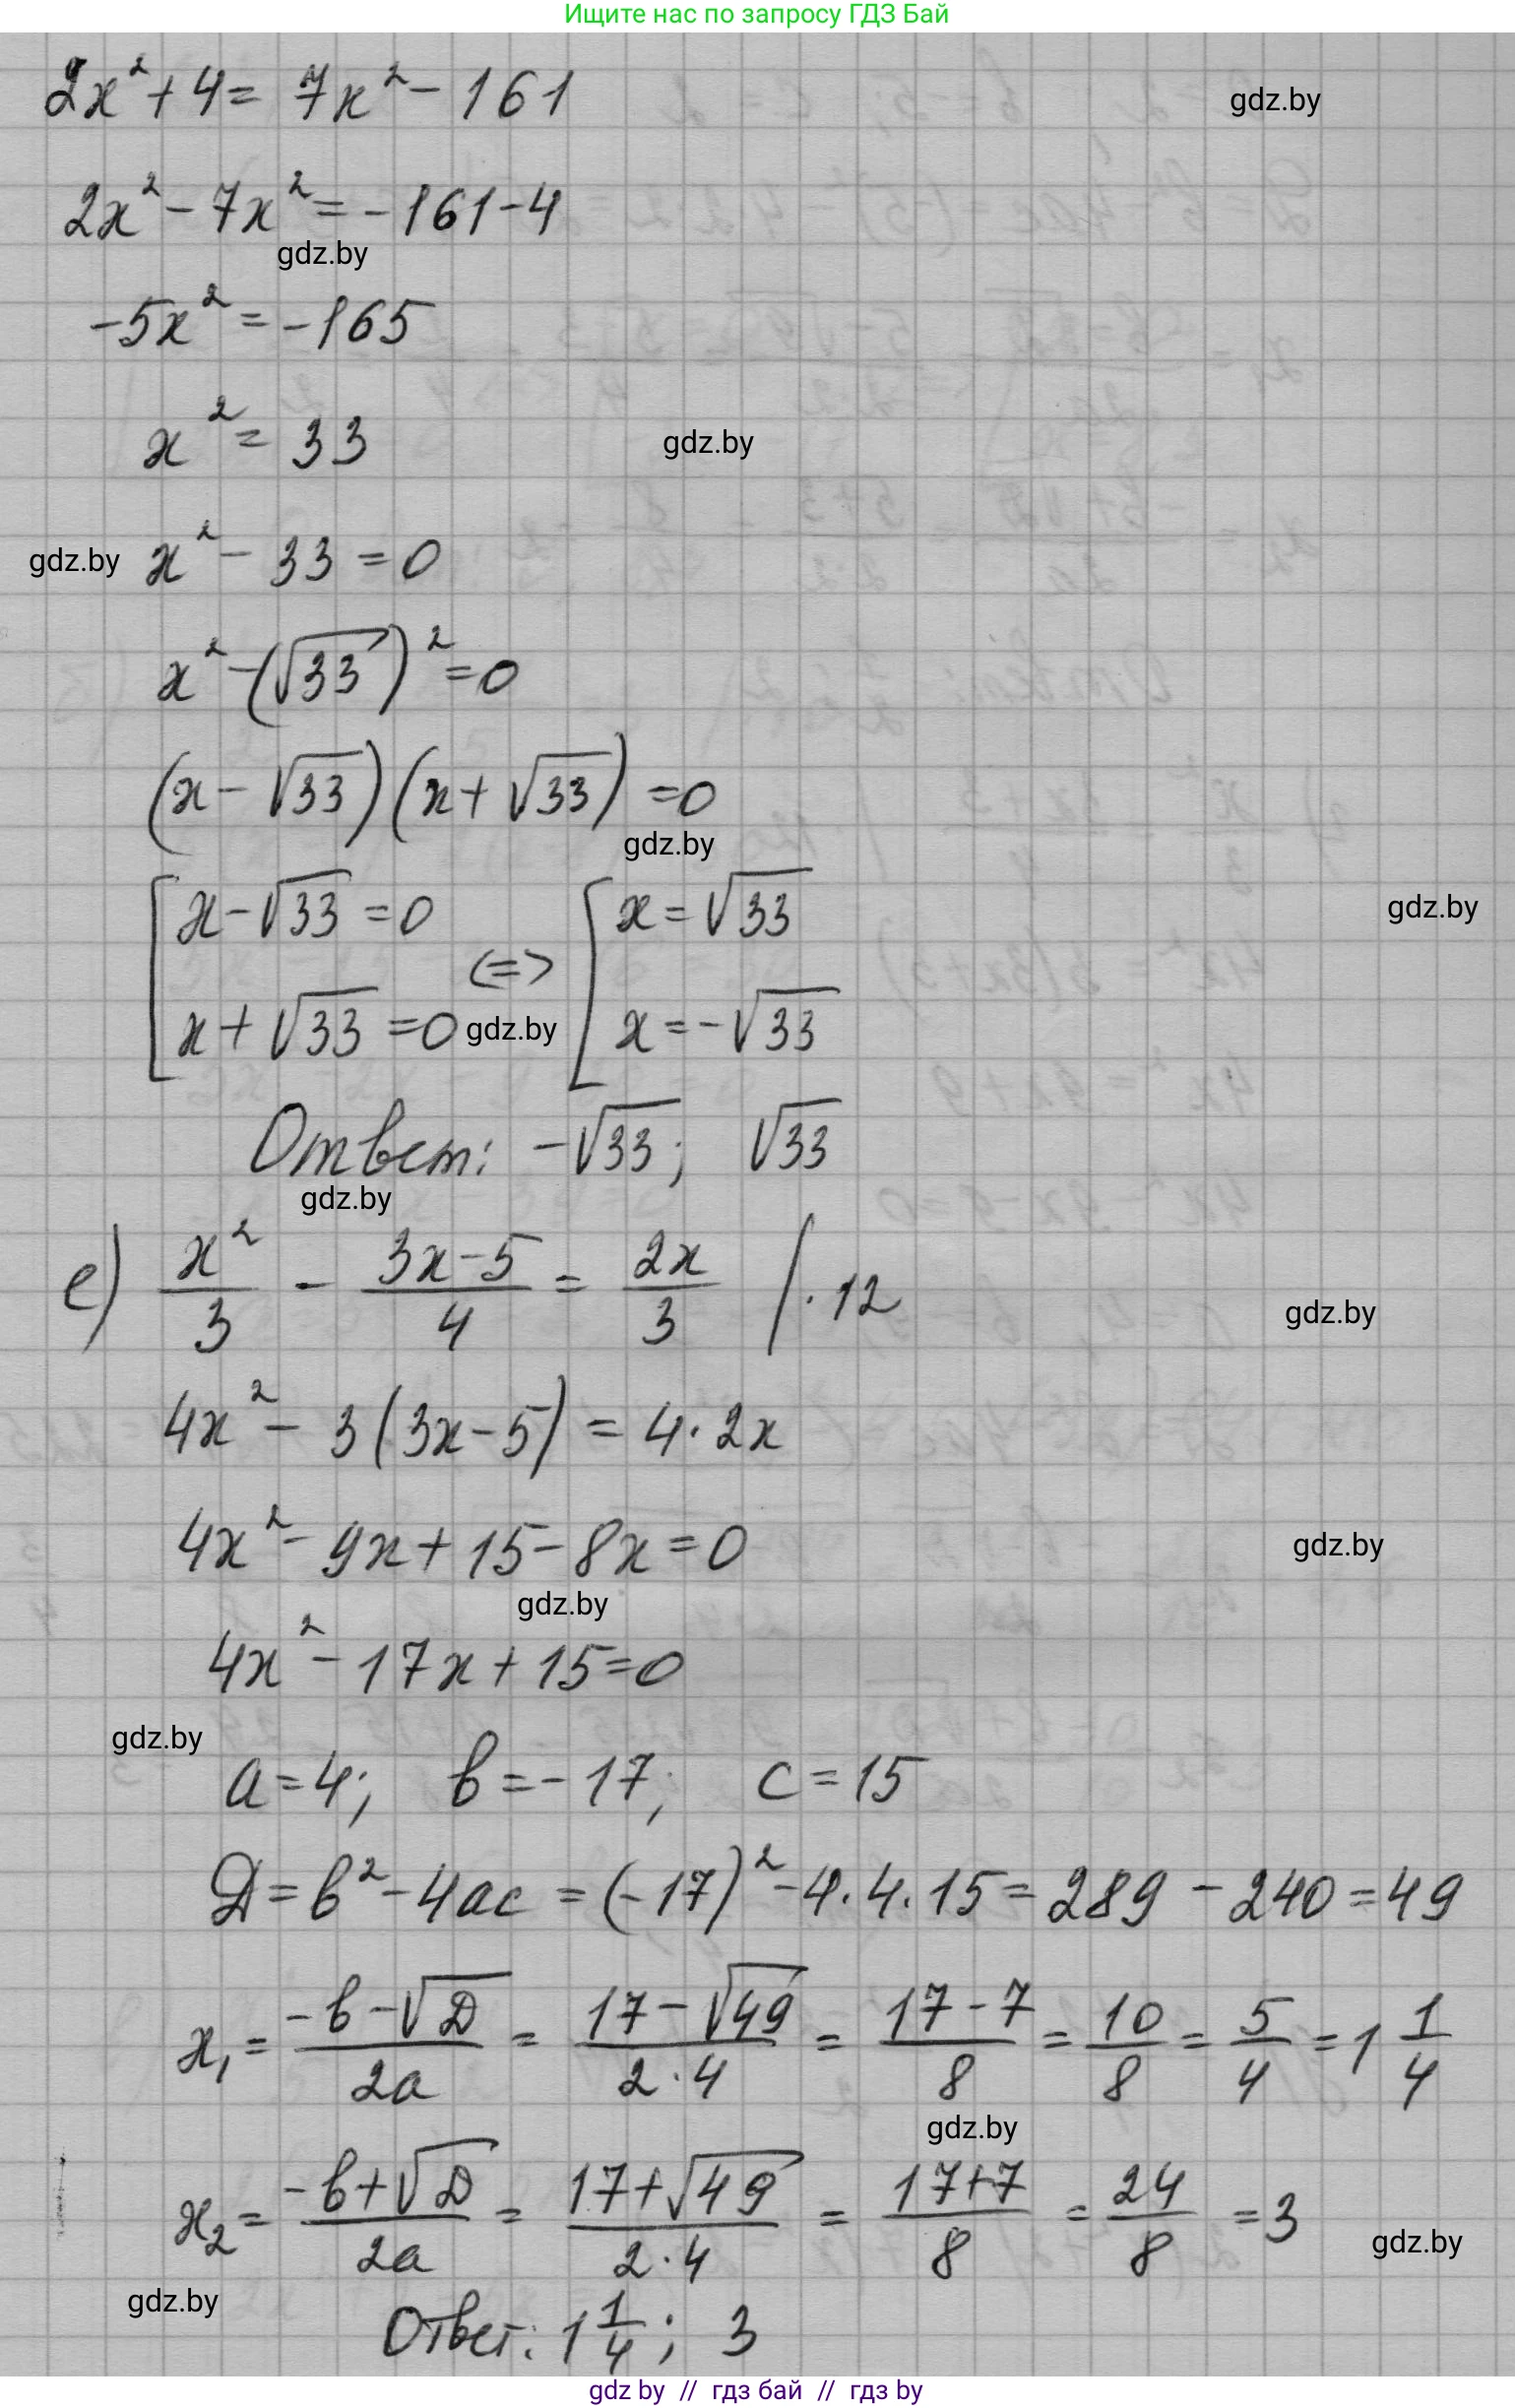 Ищите нас по запросу ГДЗ Бай
2x² + 4 = 7x² - 161
gdz.by
2x² - 7x² = -161 - 4
gdz.by
-5x² = -165
x² = 33
gdz.by
gdz.by
x² - 33 = 0
x² - (√33)² = 0
(x - √33)(x + √33) = 0
gdz.by
[ x - √33 = 0 <=> [ x = √33
gdz.by
x + √33 = 0 gdz.by x = -√33
Ответ: -√33; √33
gdz.by
е) x²/3 - (3x-5)/4 = 2x/3 / · 12
gdz.by
4x² - 3(3x-5) = 4 · 2x
4x² - 9x + 15 - 8x = 0
gdz.by
gdz.by
4x² - 17x + 15 = 0
gdz.by
a = 4; b = -17; c = 15
D = b² - 4ac = (-17)² - 4 · 4 · 15 = 289 - 240 = 49
x₁ = (-b - √D)/2a = (17 - √49)/(2 · 4) = (17 - 7)/8 = 10/8 = 5/4 = 1 1/4
gdz.by
x₂ = (-b + √D)/2a = (17 + √49)/(2 · 4) = (17 + 7)/8 = 24/8 = 3
gdz.by
gdz.by
Ответ: 1 1/4; 3
gdz by // гдз бай // гдз by